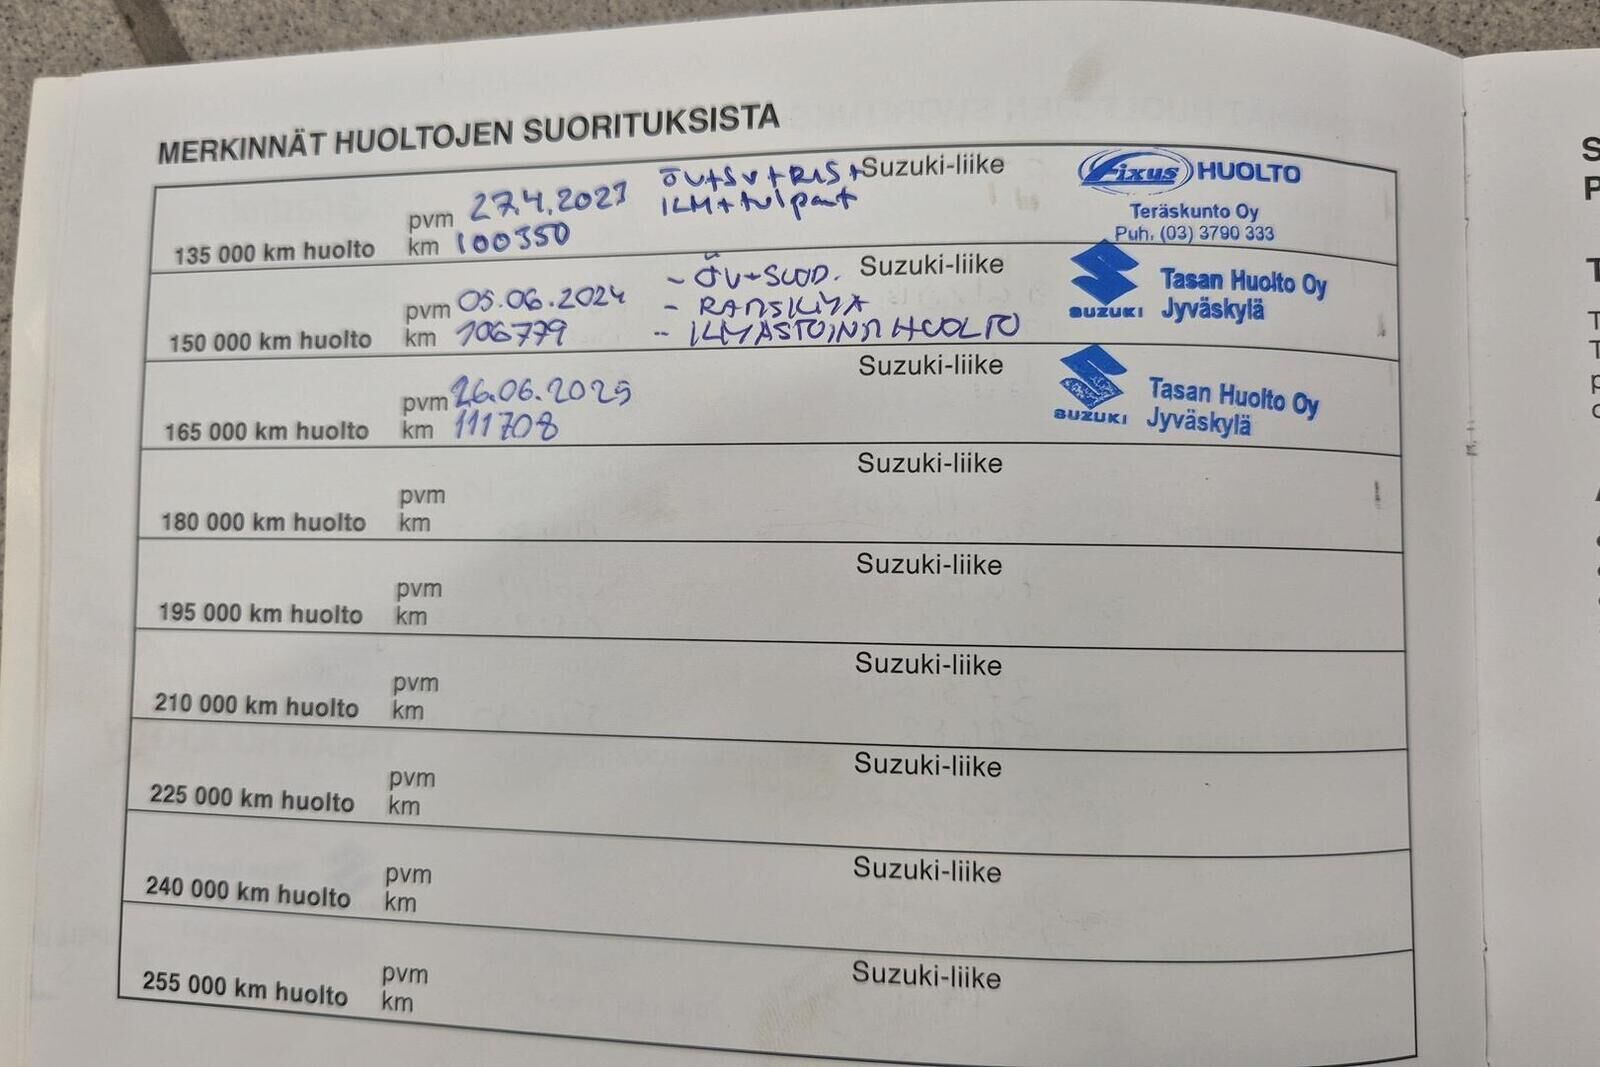 MERKINNÄT HUOLTOJEN SUORITUKSISTA
135 000 km huolto pvm 27.4.2023 ÖV+SV+RAS+ Suzuki-liike Fixus HUOLTO
km 100350 ILM+tulpat Teräskunto Oy
Puh. (03) 3790 333
150 000 km huolto pvm 05.06.2024 - ÖV+SUOD. Suzuki-liike Tasan Huolto Oy
km 106779 - RAITISILMA SUZUKI Jyväskylä
- ILMASTOINTIHUOLTO
165 000 km huolto pvm 26.06.2025 Suzuki-liike Tasan Huolto Oy
km 111708 SUZUKI Jyväskylä
180 000 km huolto pvm Suzuki-liike
km
195 000 km huolto pvm Suzuki-liike
km
210 000 km huolto pvm Suzuki-liike
km
225 000 km huolto pvm Suzuki-liike
km
240 000 km huolto pvm Suzuki-liike
km
255 000 km huolto pvm Suzuki-liike
km